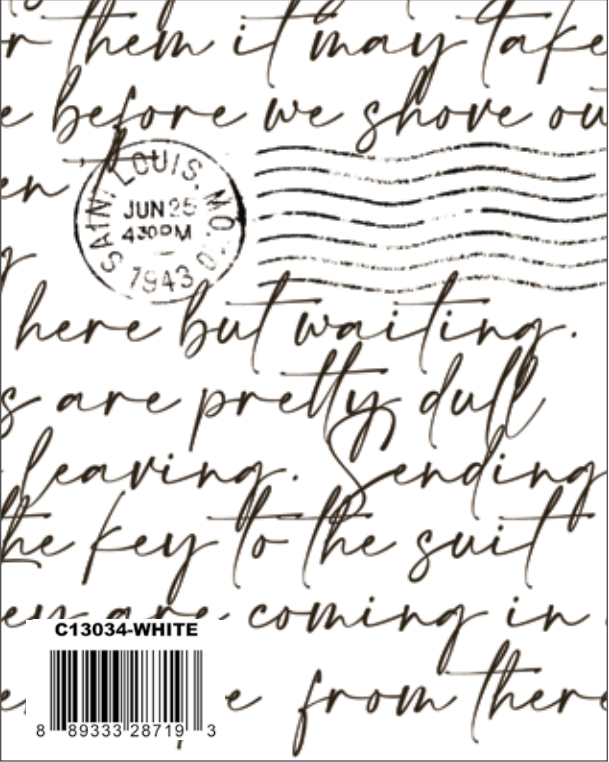 r them it may take
e before we shove ou
en
SAINT LOUIS, MO.
JUN 25
430PM
1943
here but waiting.
s are pretty dull
leaving. Sending
the key to the suit
ey are coming in
C13034-WHITE
e from there
8 89333 28719 3